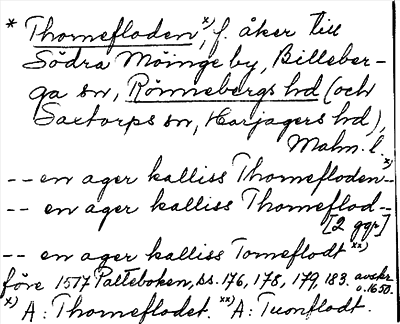 * Thomefloden x), f. åker till
Södra Möinge by, Billeber-
ga sn, Rönnebergs hd (och
Saxtorps sn, Harjagers hd),
Malm. l.
-- en ager kalliss Thomefloden-- x)
-- en ager kalliss Thomeflod--
[2 ggr]
-- en ager kalliss Tomeflodt xx)
före 1517 Palteboken, ss. 176, 178, 179, 183. avskr. o. 1650.
x) A: Thomeflodet. xx) A: Tuonflodt.